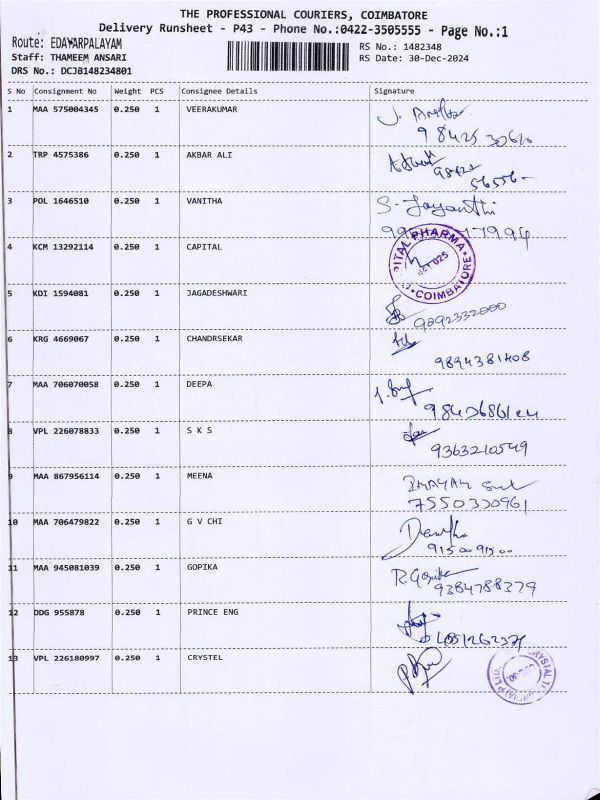 THE PROFESSIONAL COURIERS, COIMBATORE
Delivery Runsheet - P43 - Phone No.:0422-3505555 - Page No.:1
Route: EDAYARPALAYAM
RS No.: 1482348
Staff: THAMEEM ANSARI
RS Date: 30-Dec-2024
DRS No.: DCJB148234801
S No Consignment No Weight PCS Consignee Details Signature
1 MAA 575004345 0.250 1 VEERAKUMAR
2 TRP 4575386 0.250 1 AKBAR ALI
56556
3 POL 1646510 0.250 1 VANITHA S. Jayanthi
4 KCM 13292114 0.250 1 CAPITAL
PITAL PHARMA
COIMBATORE
5 KDI 1594081 0.250 1 JAGADESHWARI
9092332000
6 KRG 4669067 0.250 1 CHANDRSEKAR
9894381408
7 MAA 706070058 0.250 1 DEEPA
8 VPL 226078833 0.250 1 S K S
9363210549
9 MAA 867956114 0.250 1 MEENA
7550330961
10 MAA 706479822 0.250 1 G V CHI
91500915
11 MAA 945081039 0.250 1 GOPIKA R. Gopika
9384788379
12 DDG 955878 0.250 1 PRINCE ENG
13 VPL 226180997 0.250 1 CRYSTEL